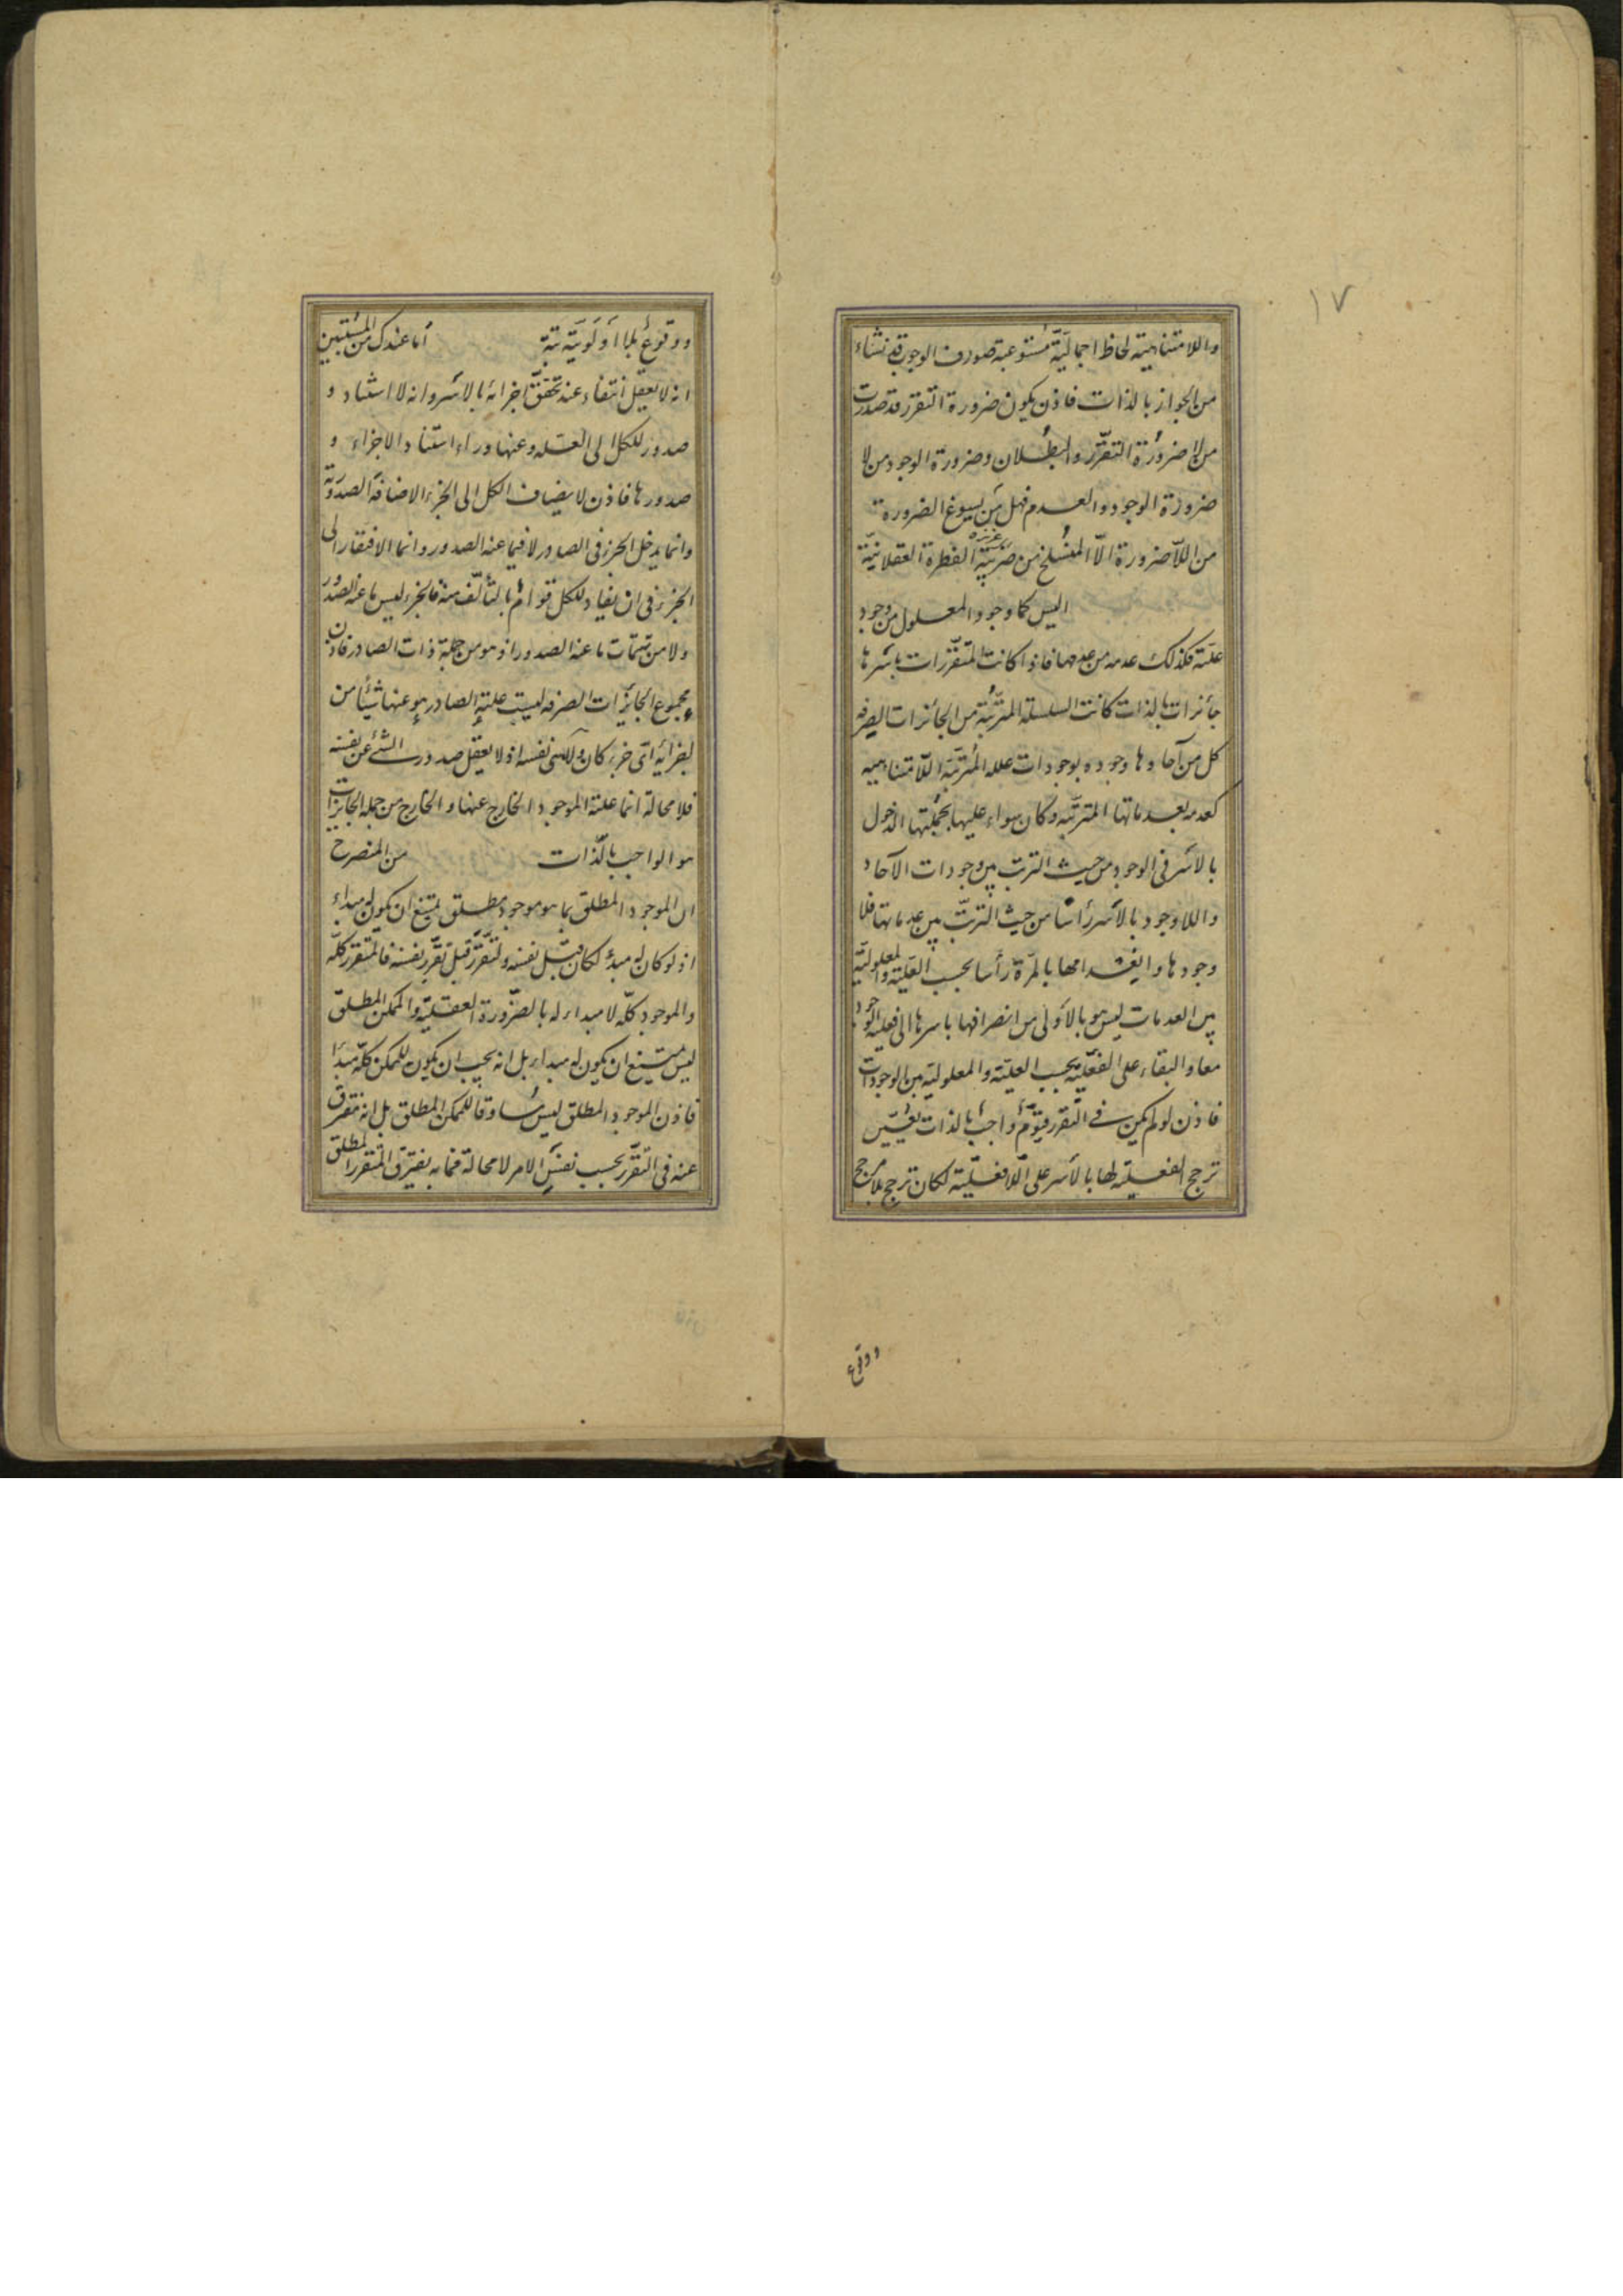 ١٧
واللامتناهية لحاظ اجماليّة مستوعبة صورف الوجوب قد نشاء
من الجواز بالذات فاذن يكون ضرورة التقرر قد صدرت
من لا ضرورة التقرّر والبطلان وضرورة الوجود من لا
ضرورة الوجود والعدم فهل من يسوغ الضرورة
من اللاضرورة الّا المنسلخ من غريزة الفطرة العقلانيّة
اليس كما وجود المعلول من وجود
علته فكذلك عدمه من عدمها فاذا كانت المتقررات باسرها
جائزات بالذات كانت السلسلة المترتّبة من الجائزات الصرفه
كل من آحادها وجوده بوجودات علله المترتبة اللامتناهيه
كعدمه بعدماتها المترتّبه وكان سواء عليها بجملتها الدخول
بالاسر في الوجود من حيث الترتب بين وجودات الآحاد
واللاوجود بالاسر رأسا من حيث الترتّب بين عدماتها فلا
وجودها وانعدامها بالمرّة رأسا بحسب العليّة والمعلوليّة
بين العدمات ليس هو بالاولى من انصرافها باسرها الى فعلية الوجود
معا والبقاء على الفعليّة بحسب العليّة والمعلولية بين الوجودات
فاذن لو لم يكن في التقرر قيوم واجب بالذات بعين
ترجح الفعلية لها بالاسر على اللافعليّة لكان ترجح بلا مرجح
ووقوع
ووقوع بلا اولويّة بتة اما عندك من المستبين
انه لا يعقل انتفاء عند تحقّق اجزائه بالاسر وانه لا استناد و
صدور للكل الى العله وعنها وراء استناد الاجزاء و
صدورها فاذن لا يضاف الكل الى الجزء الاضافة الصدوريّة
وانما يدخل الجزء في الصادر لا فيما عنه الصدور وانما الافتقار الى
الجزء في ان يفاد للكل قوام ما بالتألّف منه فالجزء ليس ما عنه الصدور
ولا من تتمات ما عنه الصدور اذ هو من جملة ذات الصادر فاذن
مجموع الجائزات الصرفه ليست علته الصادر هو عنها شيئا من
اجزائه اي جزء كان ولا هي نفسه اذ لا يعقل صدور الشئ عن نفسه
فلا محالة انما علته الموجود الخارج عنها والخارج من جملة الجائزات
هو الواجب بالذات من المنصرح
ان الموجود المطلق بما هو موجود مطلق يمتنع ان يكون له مبداء
اذ لو كان له مبدء لكان قبل نفسه ولتقرّر قبل تقرر نفسه فالمتقرر كلّه
والموجود كلّه لا مبداء له بالضّرورة العقليّة والممكن المطلق
ليس يمتنع ان يكون له مبداء بل انه يجب ان يكون للممكن كلّه مبدأ
فاذن الموجود المطلق ليس مساوقا للممكن المطلق بل انه مفترق
عنه في التقرّر بحسب نفس الامر لا محالة فما به يفترق المتقرر المطلق